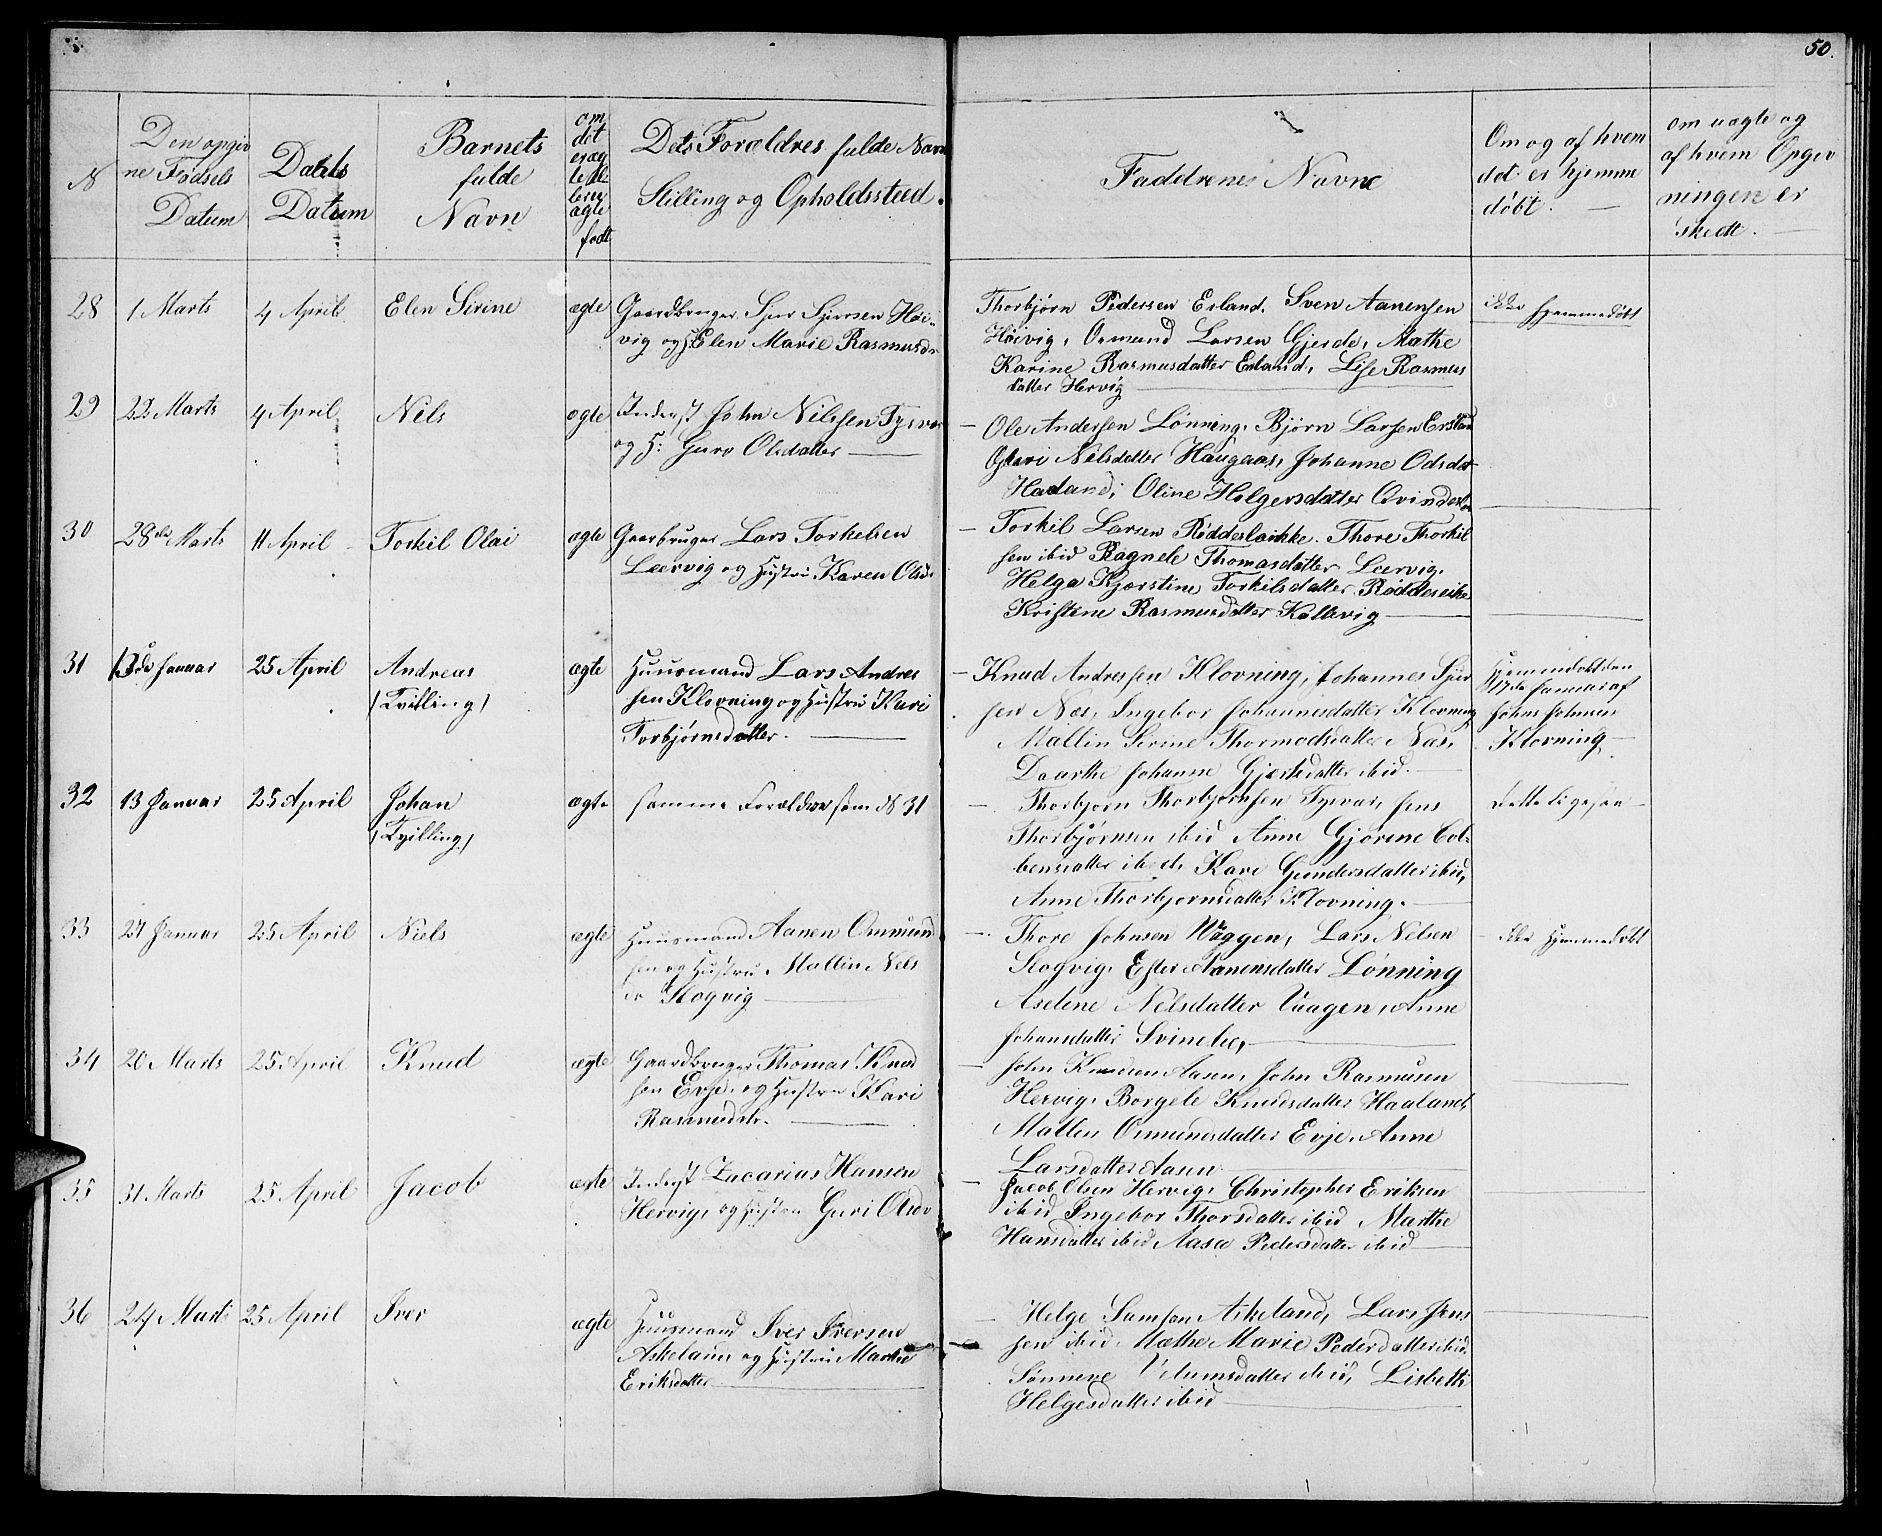 50.
N
Den opgiv
ne Fødsels
Datum
Daabs
Datum
Barnets
fulde
Navn
om
det
er æg
te ell
er u
ægte
født
Dets Forældres fulde Navn
Stilling og Opholdssted.
Faddrenes Navne
Om og af hvem
det er hjemme
døbt.
om uægte og
af hvem Opgiv
ningen er
skedt.
28 1 Marts 4 April Elen Serine ægte Gaardbruger Sjur Sjursen Høi-
vig og H: Elen Marie Rasmusdr
Thorbjørn Pedersen Erland. Sven Aanensen
Høivig, Ormund Larsen Gjerde, Mathe
Karine Rasmusdatter Erland, Lise Rasmus
datter Hervig
ikke hjemmedøbt
29 22 Marts 4 April Nils ægte Inderst John Nilssen Tysvær
og H: Guro Olsdatter
Ole Andersen Lønning, Bjørn Larsen
Nilsdatter Haugaas, Johanne
Haaland, Oline Holgersdatter
30 28de Marts 11 April Torkil Olai ægte Gaarbruger Lars Torkelsen
Lervig og Hustru Karen Olsdr
Torkil Larsen Thore Thorkil
sen ibid Ragnele Thomasdatter Lervig,
Helga Kjerstine Torkilsdatter
Kristene Rasmusdatter Kallevig
31 13de Januar 25 April Andreas ægte Huusmand Lars Andres
/Tvilling/
sen Klovning og Hustru Kari
Torbjørnsdatter.
Knud Andressen Klovning, Johannes Sjur
sen Nes, Ingebor Johannesdatter Klovning
Mallin Serine Thormodsdatter Næs,
Daarthe Johanne Gjertsdatter ibid.
Hjemmedøbt den
17de Januar af
Johns Johnsen
Klovning
32 13 Januar 25 April Johan ægte samme Forældre som N 31
/Tvilling/
Thorbjørn Thorbjørnsen Tysvær, Jens
Thorbjørnsen ibid Anne Gjorine Col-
bensdatter ibid, Kari Gundersdatter ibid,
Anne Thorbjørnsdatter Klovning.
dette ligesaa
33 27 Januar 25 April Niels ægte Huusmand Aanen Ormund
sen og Hustru Mallin Nels
dr Slogvig
Thore Johnsen Waggen, Lars Nelsen
Slogvig, Ester Aanensdatter Lønning
Aselene Nelsdatter Vaagen, Anne
Johansdatter
ikke hjemmedøbt
34 20 Marts 25 April Knud ægte Gaardbruger Thomas Knud
sen Evje og Hustru Kari
Rasmusdtr.
John Knudsen Aasen, John Rasmusen
Hervig, Borgele Knudsdatter Haaland,
Mallen Ormundsdatter Evje, Anne
Larsdatter Aasen
35 31 Marts 25 April Jacob ægte Inderst Zacarias Hansen
Hervig, og Hustru Guri Olsdr
Jacob Olsen Hervig, Christopher Eriksen
ibid Ingebor Thorsdatter ibid Marthe
Hansdatter ibid Aasa Pedersdatter ibid
36 24 Marts 25 April Iver ægte Huusmand Iver Iversen
Askeland og Hustru Marthe
Eriksdatter
Helge Samson Askeland, Lars Jens
sen ibid Mæthe Marie Pedersdatter ibid,
Sønneve datter ibid, Lisbeth
Helgesdatter ibid